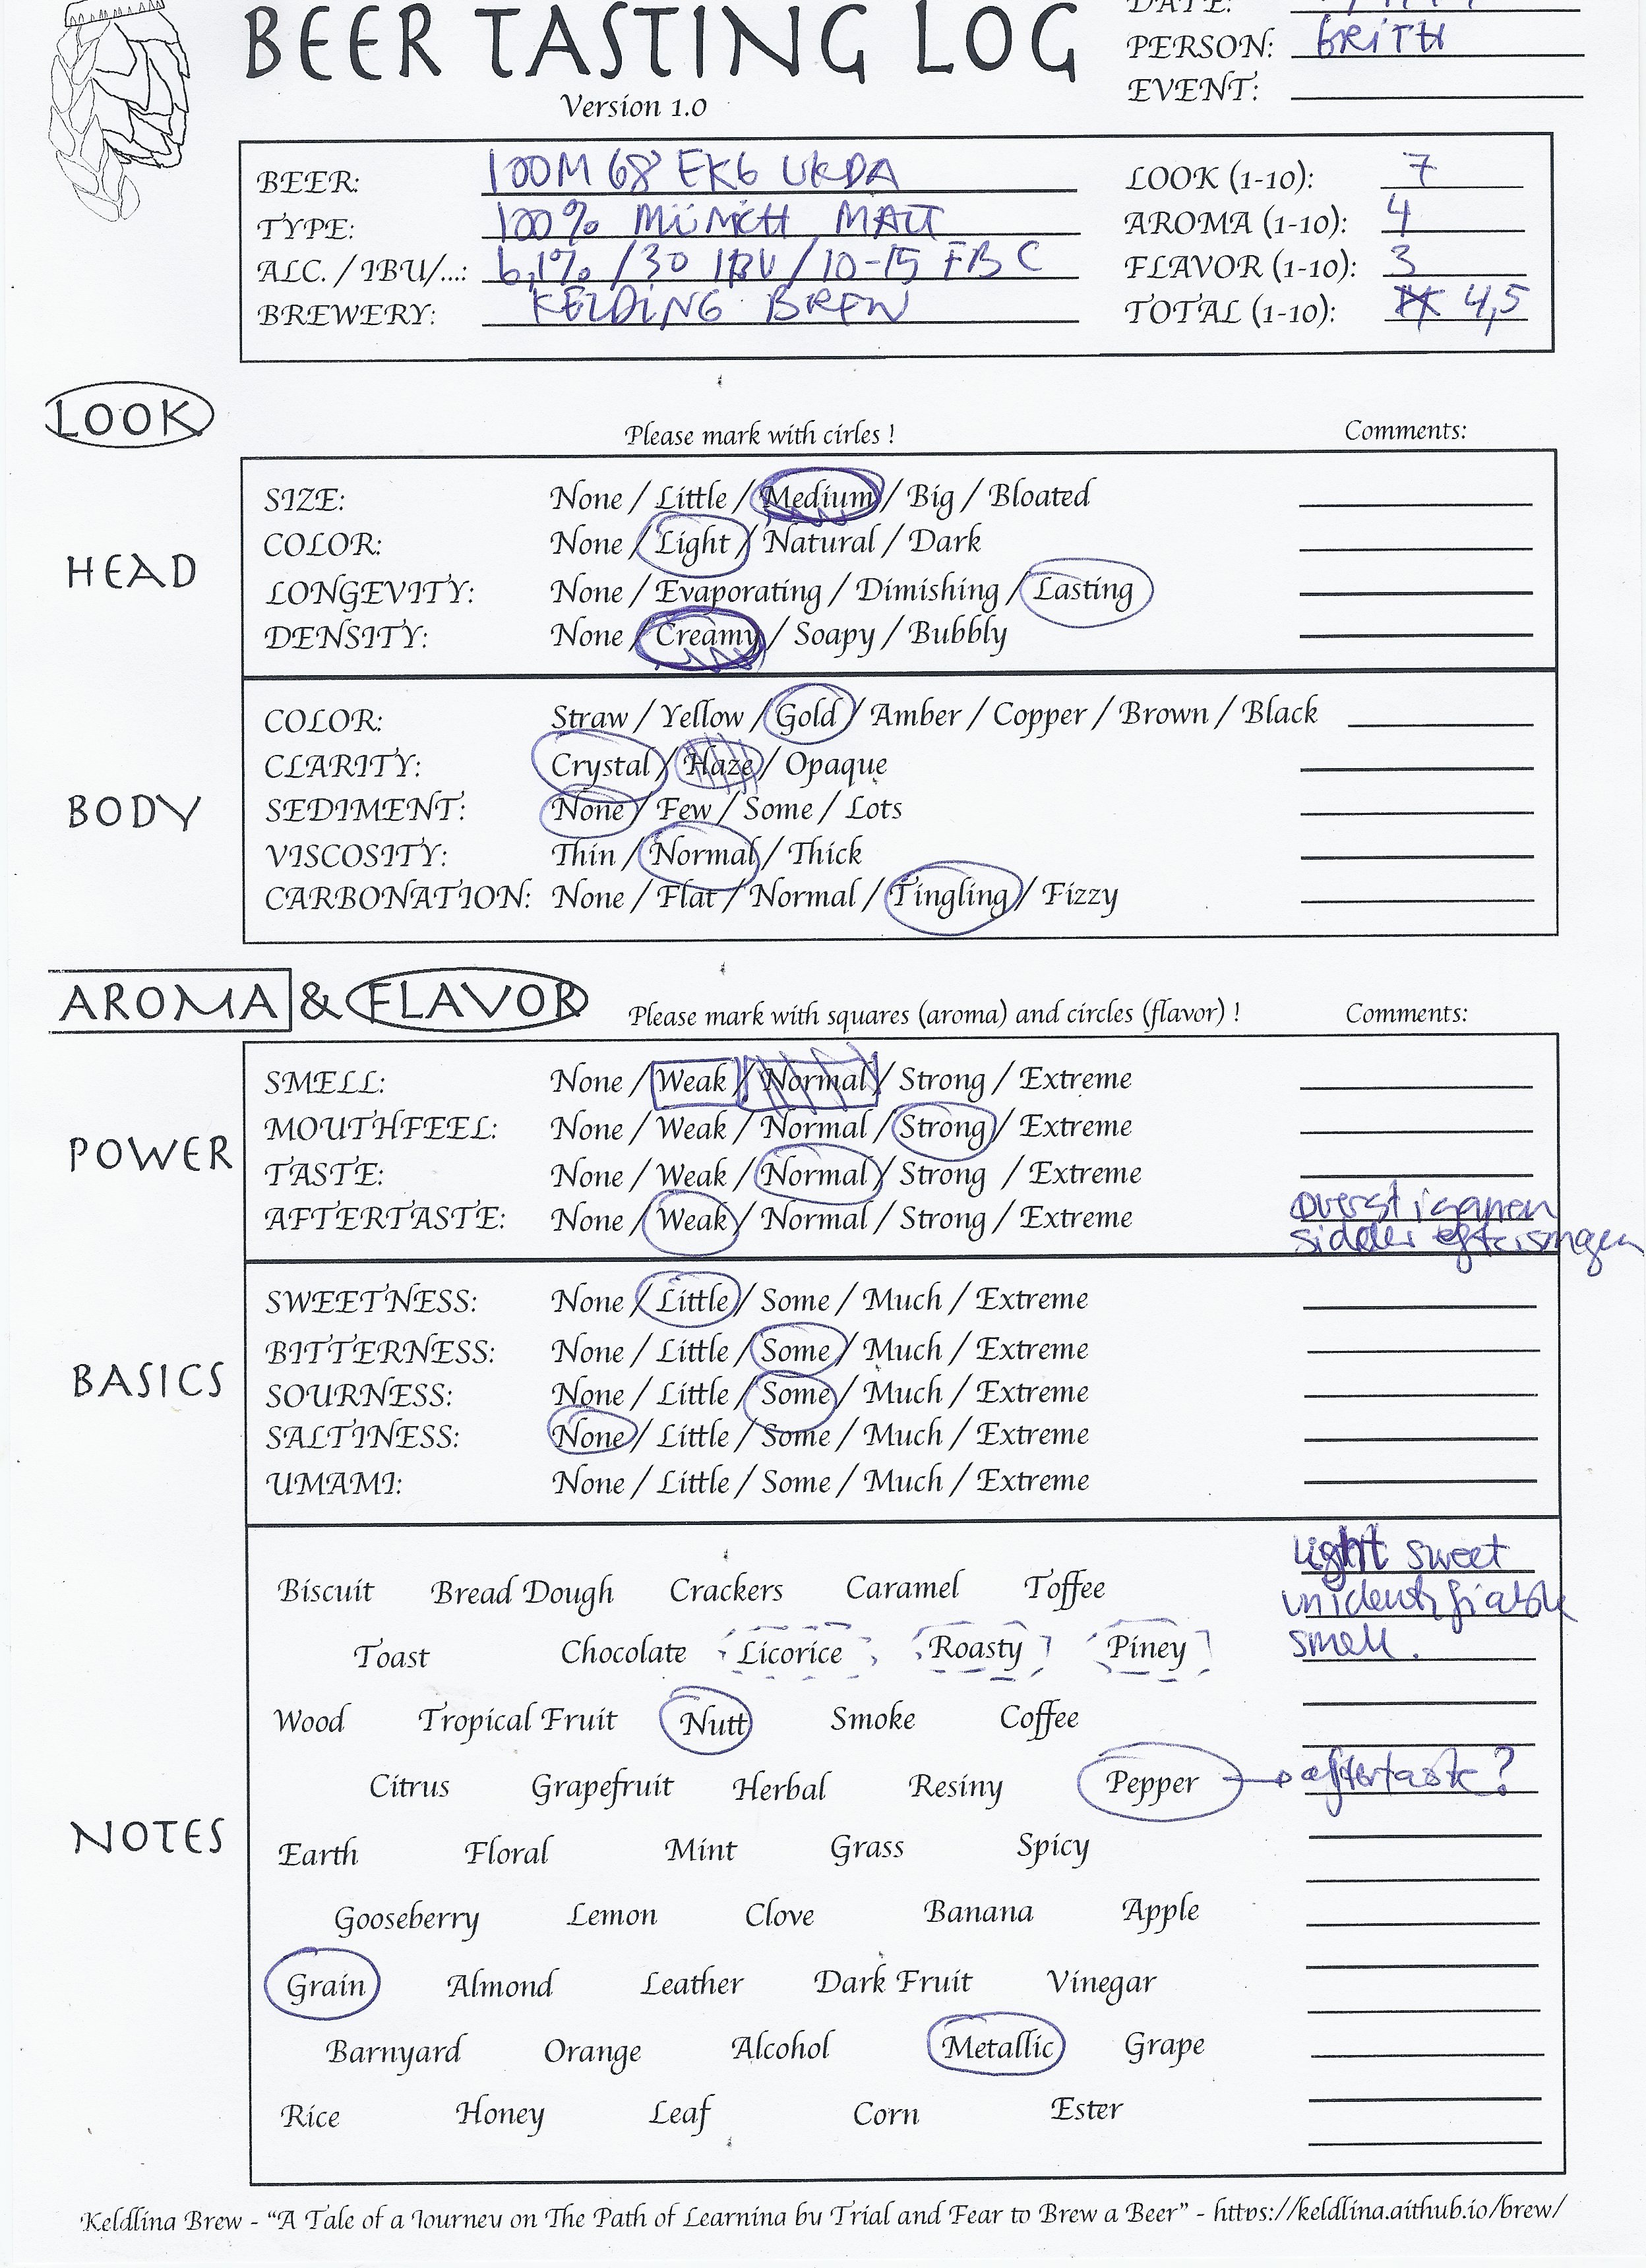 BEER TASTING LOG
Version 1.0
DATE:
PERSON: GRITH
EVENT:
BEER: 100M 68 EK6 UKDA
TYPE: 100% MÜNCH MALT
ALC. / IBU/...: 6,1% / 30 IBU / 10-15 EBC
BREWERY: KELDING BREW
LOOK (1-10): 7
AROMA (1-10): 4
FLAVOR (1-10): 3
TOTAL (1-10): 4,5
LOOK
Please mark with cirles !
Comments:
HEAD
SIZE: None / Little / Medium / Big / Bloated
COLOR: None / Light / Natural / Dark
LONGEVITY: None / Evaporating / Dimishing / Lasting
DENSITY: None / Creamy / Soapy / Bubbly
BODY
COLOR: Straw / Yellow / Gold / Amber / Copper / Brown / Black
CLARITY: Crystal / Haze / Opaque
SEDIMENT: None / Few / Some / Lots
VISCOSITY: Thin / Normal / Thick
CARBONATION: None / Flat / Normal / Tingling / Fizzy
AROMA & FLAVOR
Please mark with squares (aroma) and circles (flavor) !
Comments:
POWER
SMELL: None / Weak / Normal / Strong / Extreme
MOUTHFEEL: None / Weak / Normal / Strong / Extreme
TASTE: None / Weak / Normal / Strong / Extreme
AFTERTASTE: None / Weak / Normal / Strong / Extreme
øverst i ganen
sidder eftersmagen
BASICS
SWEETNESS: None / Little / Some / Much / Extreme
BITTERNESS: None / Little / Some / Much / Extreme
SOURNESS: None / Little / Some / Much / Extreme
SALTINESS: None / Little / Some / Much / Extreme
UMAMI: None / Little / Some / Much / Extreme
NOTES
Biscuit Bread Dough Crackers Caramel Toffee
Toast Chocolate Licorice Roasty Piney
Wood Tropical Fruit Nutt Smoke Coffee
Citrus Grapefruit Herbal Resiny Pepper
Earth Floral Mint Grass Spicy
Gooseberry Lemon Clove Banana Apple
Grain Almond Leather Dark Fruit Vinegar
Barnyard Orange Alcohol Metallic Grape
Rice Honey Leaf Corn Ester
Light sweet
unidentifiable
smell.
aftertaste?
Keldlina Brew - "A Tale of a Journey on The Path of Learnina by Trial and Fear to Brew a Beer" - https://keldlina.aithub.io/brew/